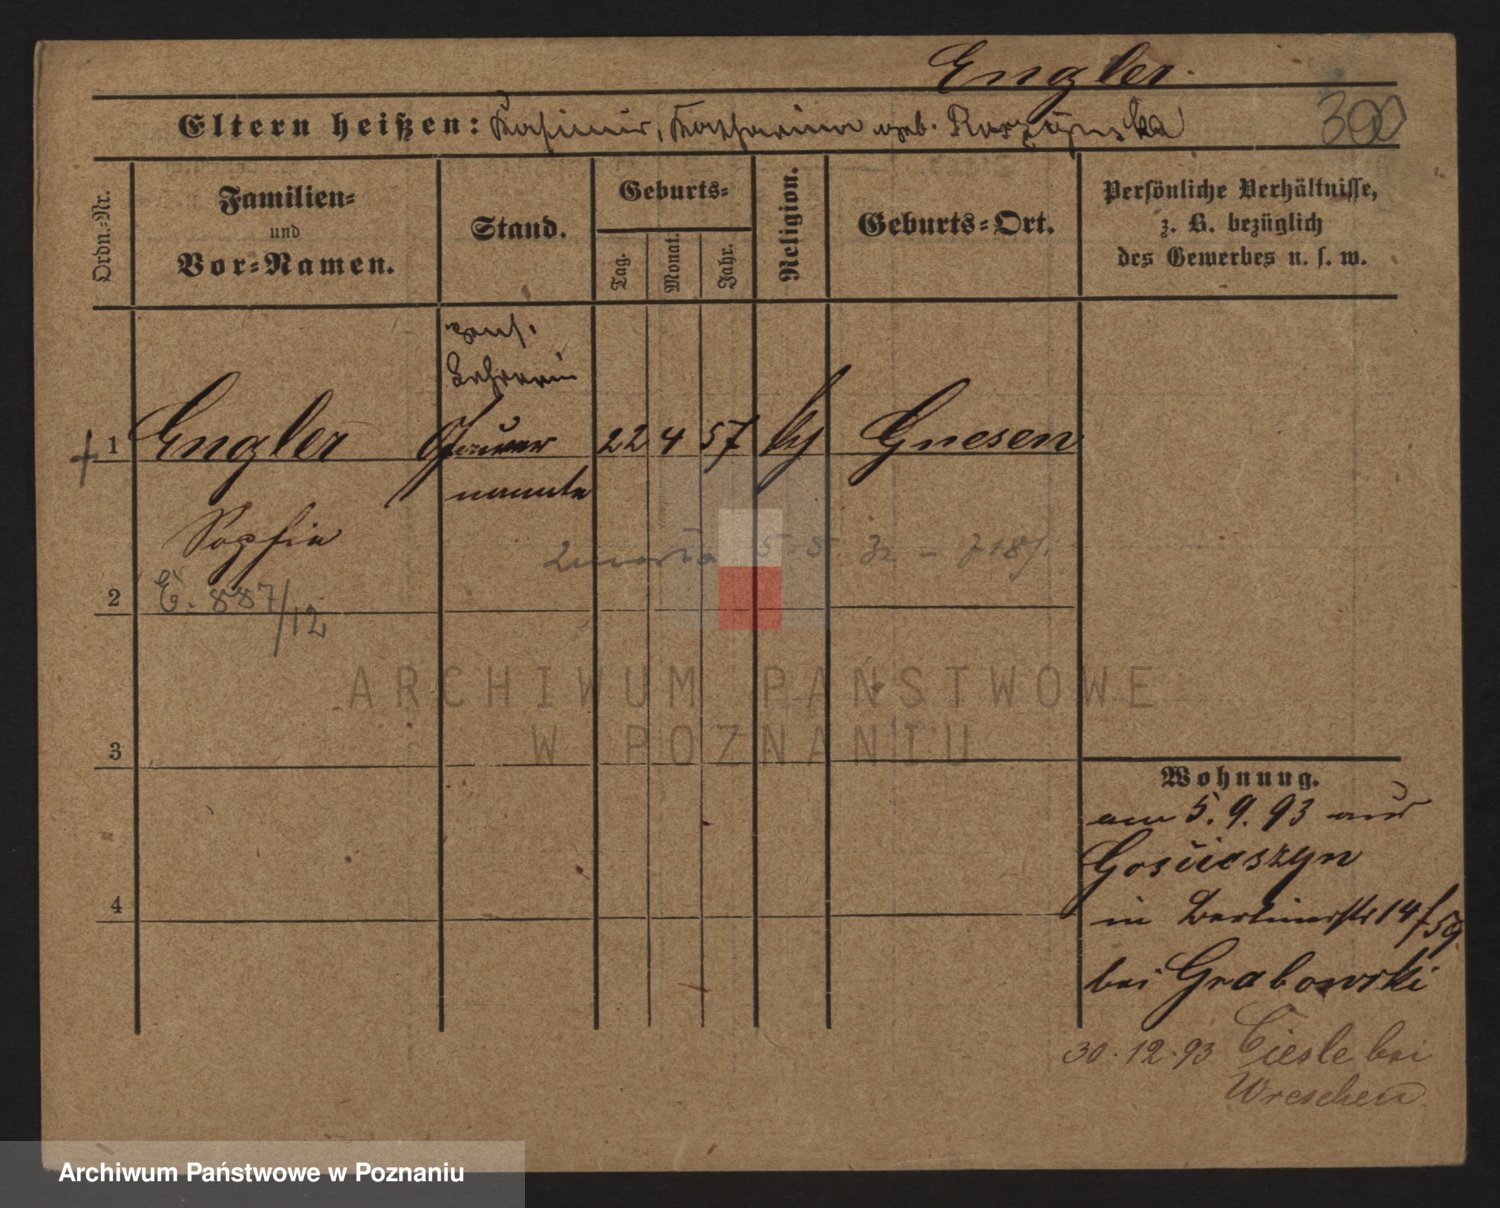 Engler
Eltern heißen: Kasimir, Katharina geb.
300
Ordn.-Nr.
Familien-
und
Vor-Namen.
Stand.
Geburts-
Tag.
Monat.
Jahr.
Religion.
Geburts-Ort.
Persönliche Verhältnisse,
z. B. bezüglich
des Gewerbes u. s. w.
pens.
Lehrerin
+ 1 Engler 22 4 57 Gnesen
Sophie
zmarła 5.5.32 – 718/
2 E. 887/12
ARCHIWUM PAŃSTWOWE
W POZNANIU
3
Wohnung.
am 5.9.93 aus
Gościeszyn
4
in Berlinerstr 14/59
bei Grabowski
30.12.93 Ciesle bei
Wreschen
Archiwum Państwowe w Poznaniu